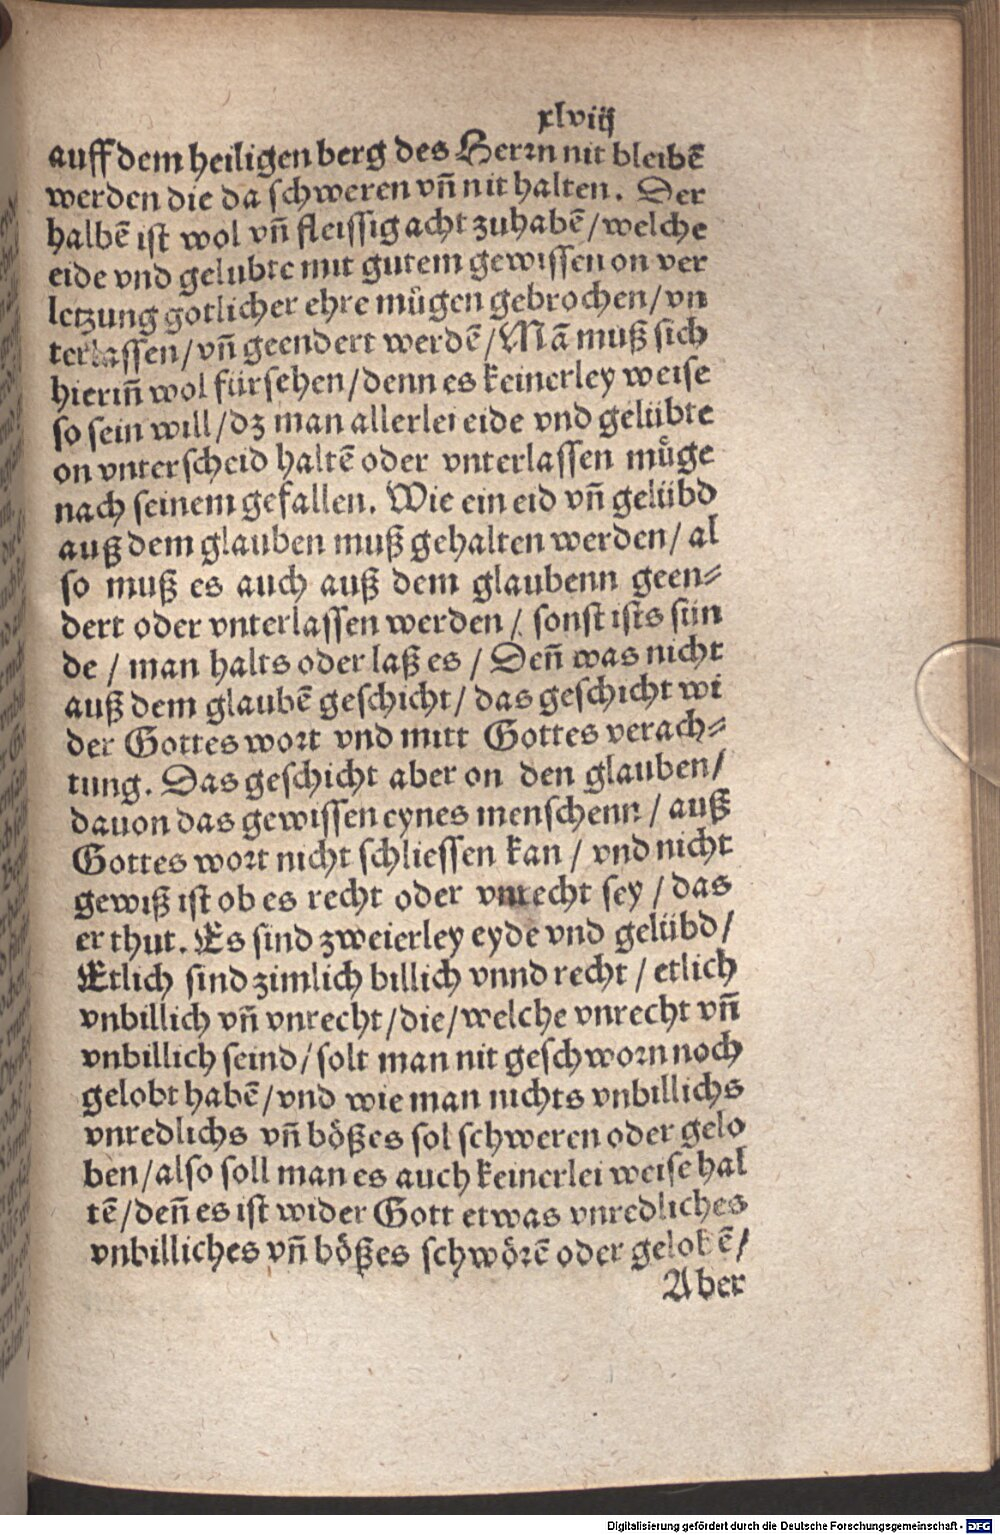 xlviij
auff dem heiligen berg des Herrn nit bleibē
werden die da schweren vñ nit halten. Der
halbē ist wol vñ fleissig acht zuhabē/welche
eide vnd gelubte mit gutem gewissen on ver
letzung gotlicher ehre mügen gebrochen/vn
terlassen/vñ geendert werdē/Mā muß sich
hieriñ wol fürsehen/denn es keinerley weise
so sein will/dz man allerlei eide vnd gelübte
on vnterscheid haltē oder vnterlassen müge
nach seinem gefallen. Wie ein eid vñ gelübd
auß dem glauben muß gehalten werden/al
so muß es auch auß dem glaubenn geen⸗
dert oder vnterlassen werden/ sonst ists sün
de / man halts oder laß es / Deñ was nicht
auß dem glaubē geschicht/ das geschicht wi
der Gottes wort vnd mitt Gottes verach⸗
tung. Das geschicht aber on den glauben/
dauon das gewissen eynes menschenn / auß
Gottes wort nicht schliessen kan / vnd nicht
gewiß ist ob es recht oder vnrecht sey / das
er thut. Es sind zweierley eyde vnd gelübd/
Etlich sind zimlich billich vnnd recht / etlich
vnbillich vñ vnrecht/die/welche vnrecht vñ
vnbillich seind/solt man nit geschworn noch
gelobt habē/vnd wie man nichts vnbillichs
vnredlichs vñ bößes sol schweren oder gelo
ben/also soll man es auch keinerlei weise hal
tē/deñ es ist wider Gott etwas vnredliches
vnbilliches vñ bößes schwörē oder gelobē/
Aber
Digitalisierung gefördert durch die Deutsche Forschungsgemeinschaft - DFG